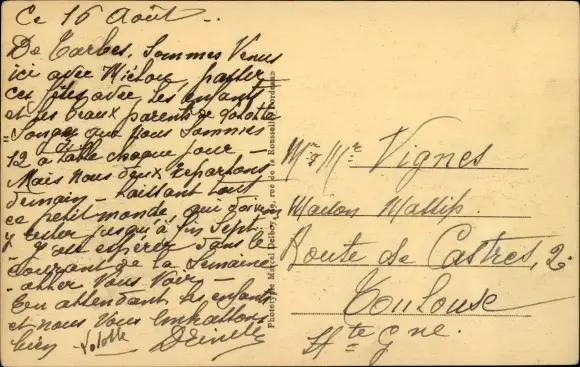 Ce 16 Août -.
De Tarbes. Sommes Venus
ici avec passer
ces fêtes avec les enfants
et les beaux parents de Lolotte
Songez que nous sommes
12 à table chaque jour -
Mais nous deux repartons
demain - laissant tout
ce petit monde, qui doivent
y rester jusqu'à fin Sept.
J'ai espérer dans le
courant de la Semaine
aller Vous Voir -
En attendant les enfants
et nous Vous embrassons
bien Lolotte
Phototypie Marcel Delboy, rue de la Rousselle, Bordeaux
Mr & Mme Vignes
Maison Mattip.
Route de Castres, 2.
Toulouse
Hte Gne.